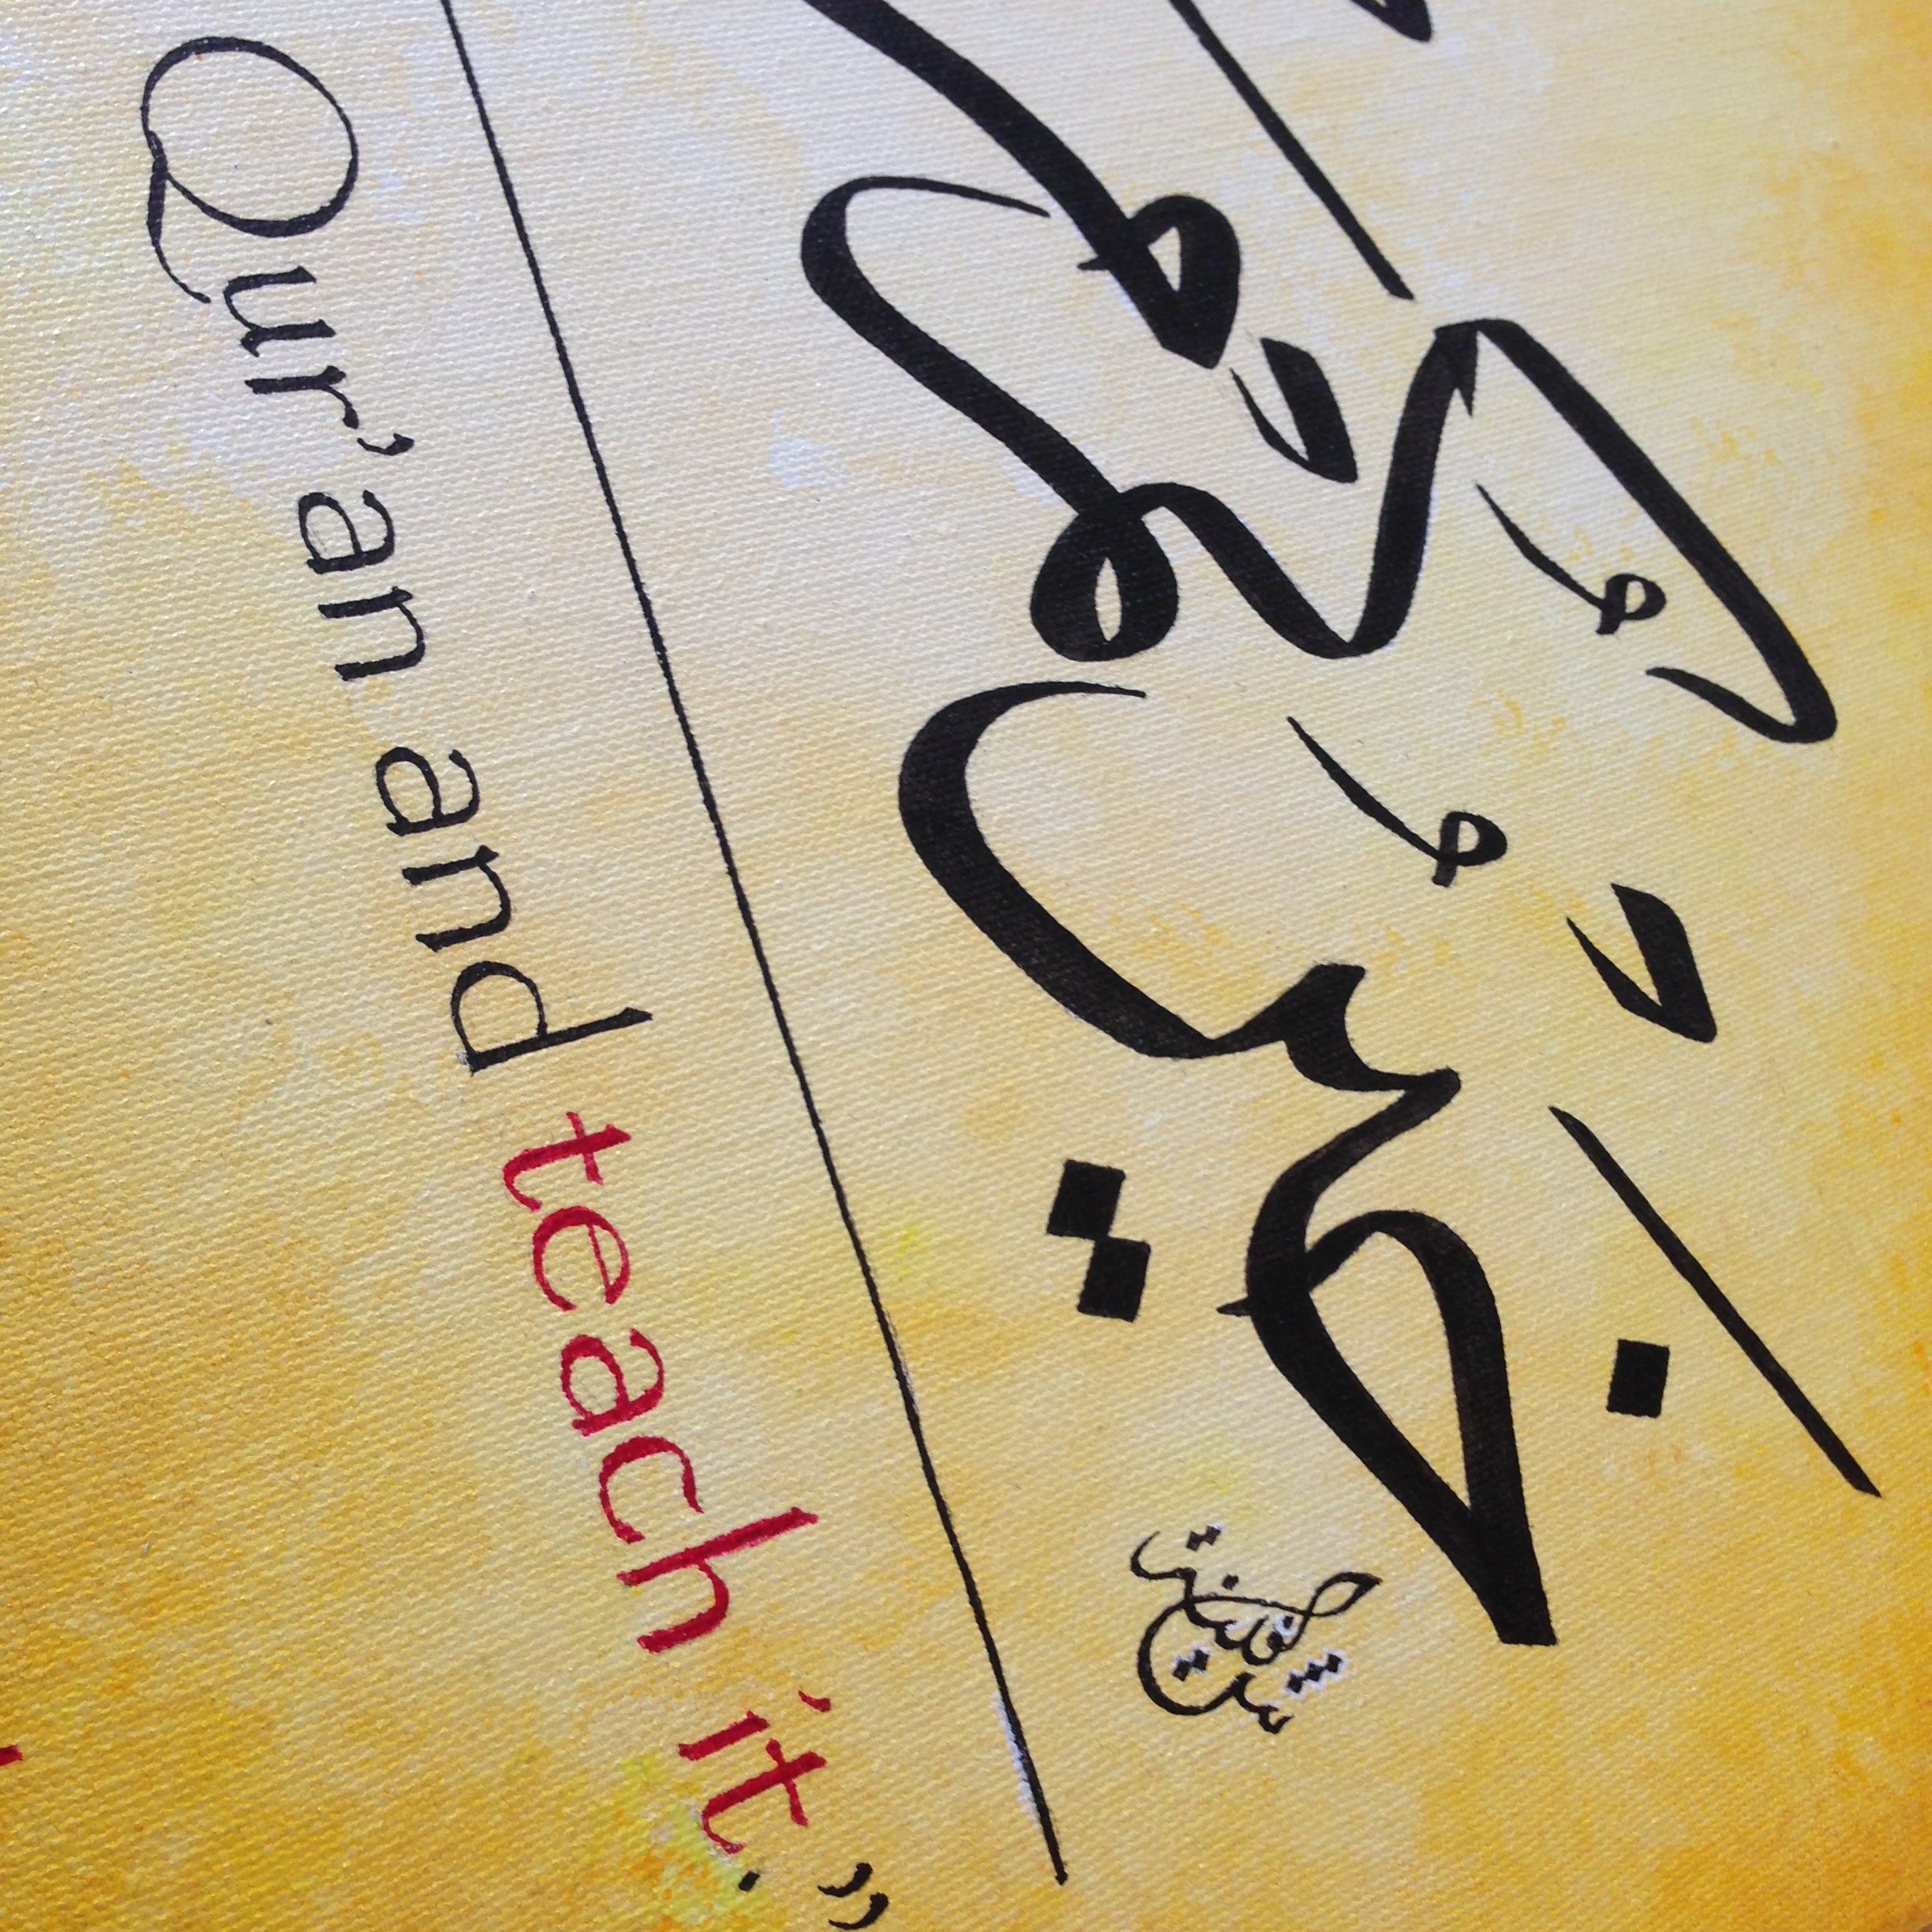 خَيْرُكُمْ
Qur'an and teach it.”